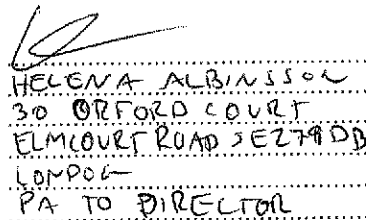 HELENA ALBINSSON
30 ORFORD COURT
ELMCOURT ROAD SE279DB
LONDON
PA TO DIRECTOR